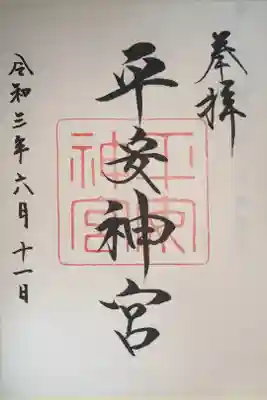 奉拝
平安神宮
平安神宮
令和三年六月十一日